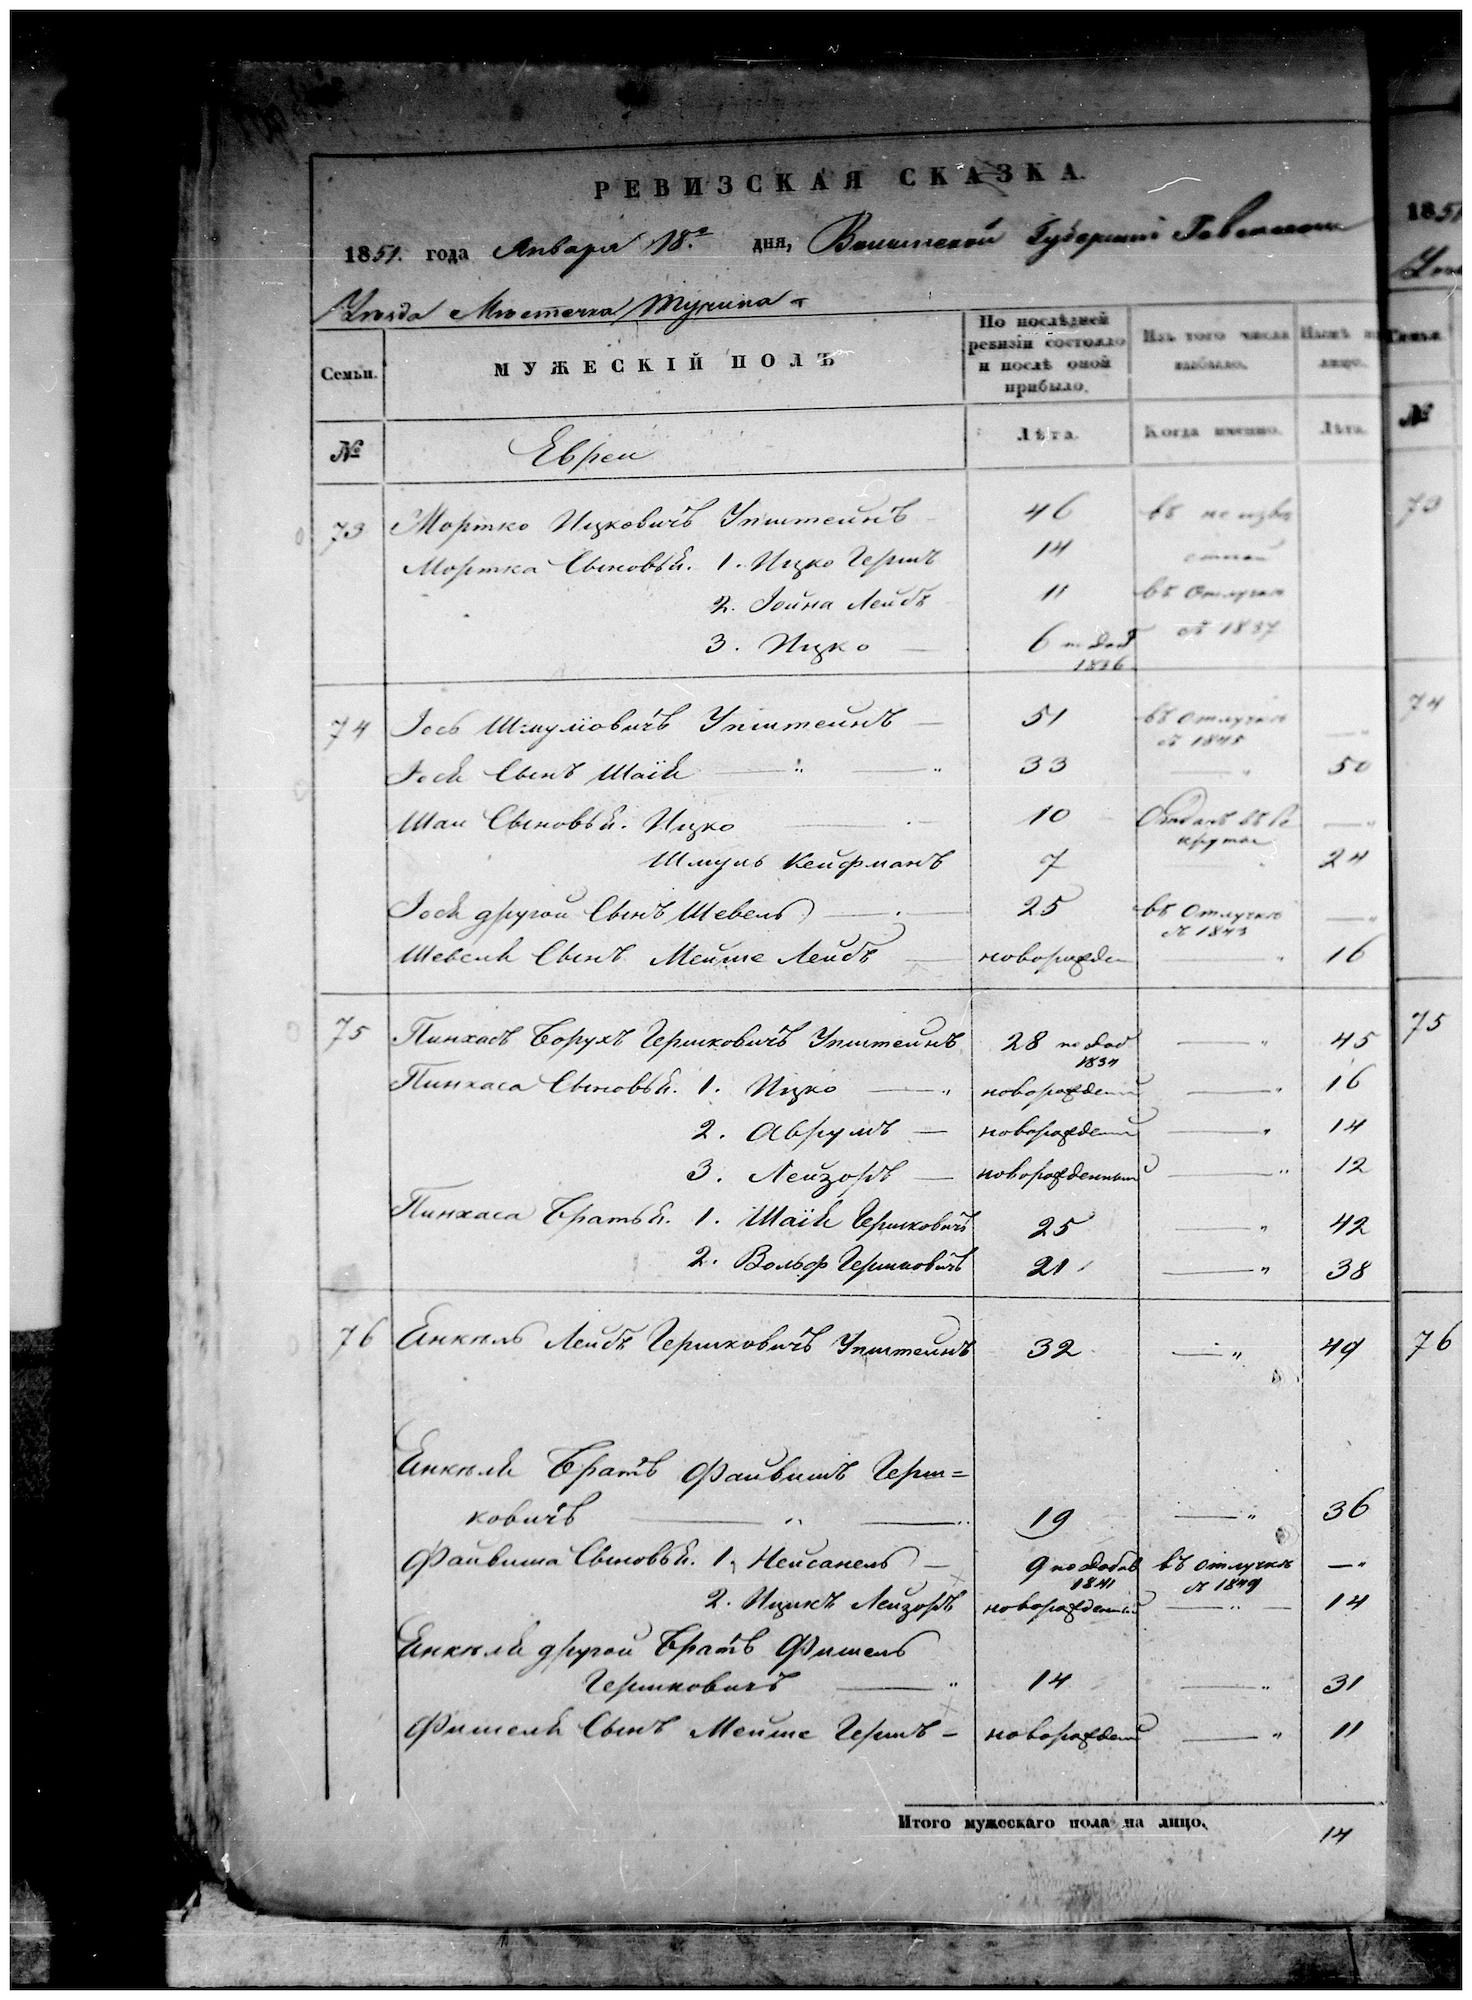 РЕВИЗСКАЯ СКАЗКА.
1851. года Января 18.го дня, Волынской Губернии Ровенского
Уѣзда Мѣстечка Тучина
Семьи. МУЖЕСКІЙ ПОЛЪ По послѣдней ревизіи состояло и послѣ оной прибыло. Изъ того числа выбыло. Нынѣ на лицо.
№ Евреи Лѣта. Когда именно. Лѣта.
73 Мортко Ицковичъ Упштейнъ 46 въ не извѣ
Мортка Сыновья. 1. Ицко Гершъ 14 стной
2. Іойна Лейбъ 11 въ Отлучкѣ
3. Ицко — 6 по доб 1836 съ 1837
74 Іось Шмуліовичъ Упштейнъ — 51 въ отлучкѣ съ 1845 — „
Іося Сынъ Шаія — „ — „ 33 — „ 50
Шаи Сыновья. Ицко — 10 Отданъ въ Ре круты — „
Шмуль Кейфманъ 7 „ 24
Іося другой Сынъ Шевель — 25 въ Отлучкѣ съ 1843 — „
Шевеля Сынъ Мейше Лейбъ — новорожден — „ 16
75 Пинхасъ Борухъ Гершковичъ Упштейнъ 28 по доб 1834 — „ 45
Пинхаса Сыновья. 1. Ицко — „ новорожденый — „ 16
2. Аврумъ — новорожденый — „ 14
3. Лейзоръ — новорожденный — „ 12
Пинхаса Братья. 1. Шаія Гершковичъ 25 — „ 42
2. Вольф Гершковичъ 21 — „ 38
76 Янкель Лейбъ Гершковичъ Упштейнъ 32 — „ 49
Янкеля Братъ Файвишъ Герш=
ковичъ — „ — „ 19 — „ 36
Файвиша Сыновья. 1. Нейсанель — 9 по добав 1841 въ отлучкѣ съ 1849 — „
2. Ицикъ Лейзоръ новорожденный — „ — 14
Янкеля другой Братъ Фишель
Гершковичъ — „ 14 — „ 31
Фишеля Сынъ Мейше Гершъ — новорожденый — „ 11
Итого мужескаго пола на лицо. 14
1851
№
73
74
75
76